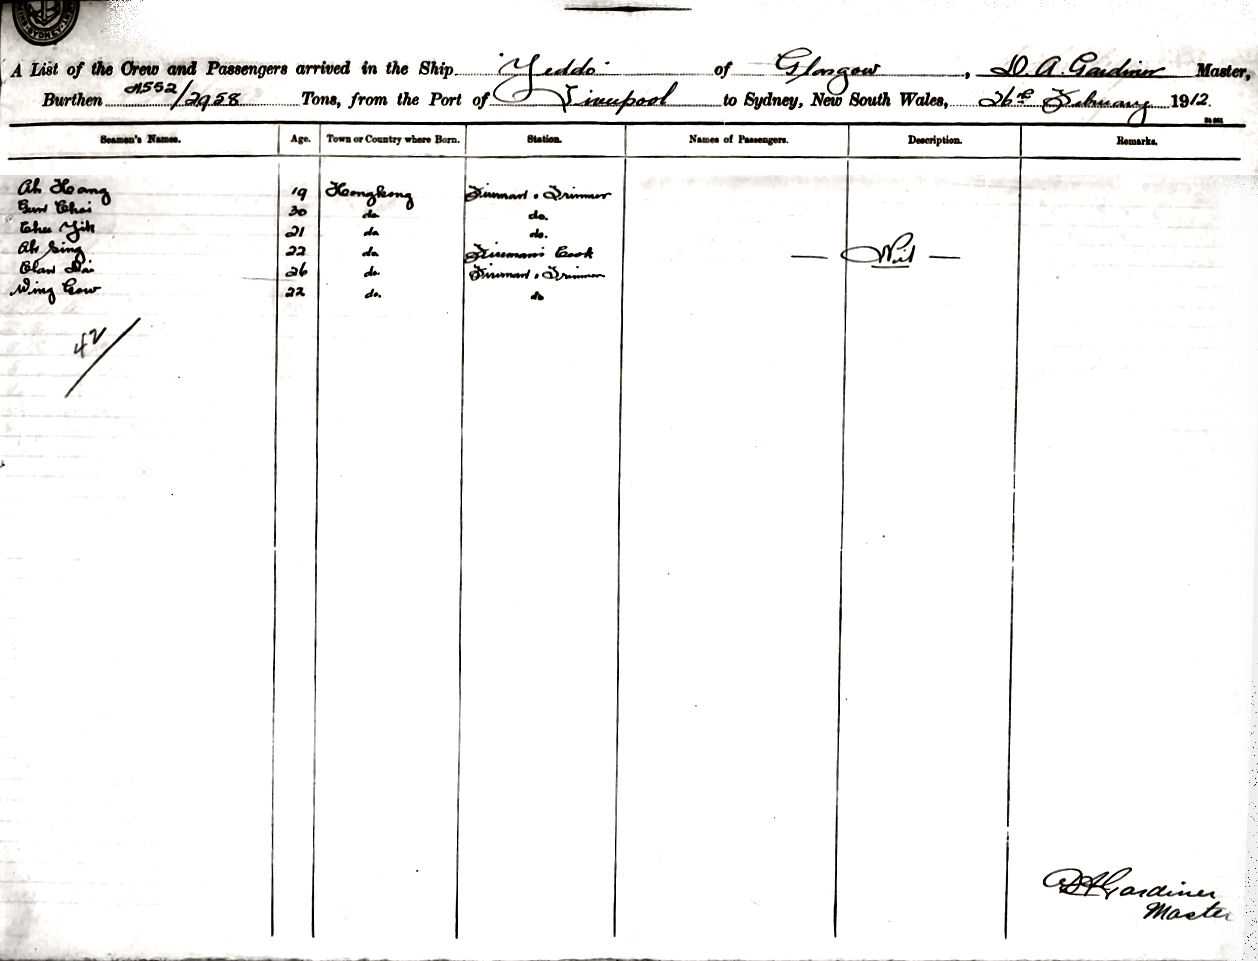 A List of the Crew and Passengers arrived in the Ship Yeddo of Glasgow, D. A. Gardiner Master,
Burthen 4552/2958 Tons, from the Port of Liverpool to Sydney, New South Wales, 26th February 1912.
Seamen's Names. Age. Town or Country where Born. Station. Names of Passengers. Description. Remarks.
Ah Hong 19 Hongkong Fireman & Trimmer
Chai 30 do do.
Yik 21 do do.
Ah Sing 22 do Fireman's Cook — Nil —
26 do. Fireman & Trimmer
Wing 22 do. do
42/
D A Gardiner
Master